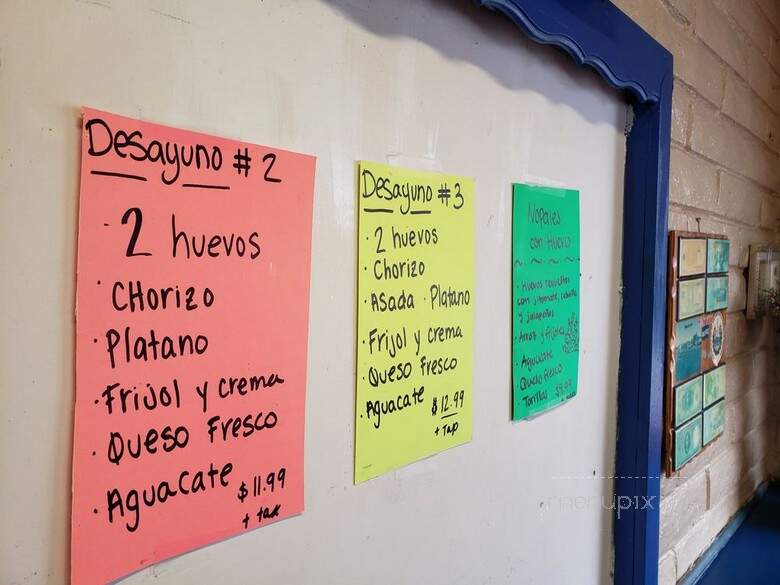 Desayuno # 2
· 2 huevos
· CHorizo
· Platano
· Frijol y crema
· Queso Fresco
· Aguacate $11.99
+ tax
Desayuno #3
· 2 huevos
· Chorizo
· Asada · Platano
· Frijol y crema
· Queso Fresco
· Aguacate $12.99
+ Tax
Nopales
con Huevo
· Huevos revueltos
con jitomate, cebolla
y jalapeños
· Arroz y frijoles
· Aguacate
· Queso fresco
· Tortillas $9.99
menupix